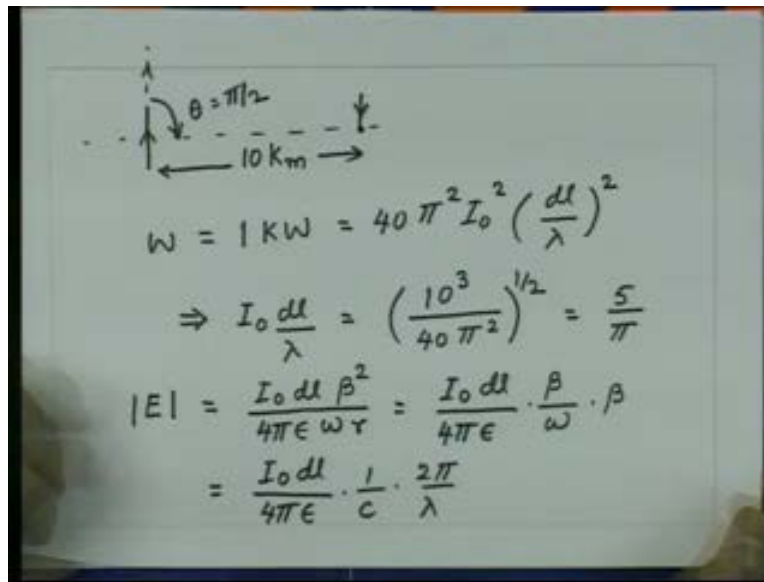 θ = π/2
10 Km
W = 1 KW = 40 π² I₀² (dl/λ)²
⇒ I₀ dl/λ = (10³/40 π²)^1/2 = 5/π
|E| = I₀ dl β²/4π ε ω r = I₀ dl/4π ε · β/ω · β
= I₀ dl/4π ε · 1/c · 2π/λ